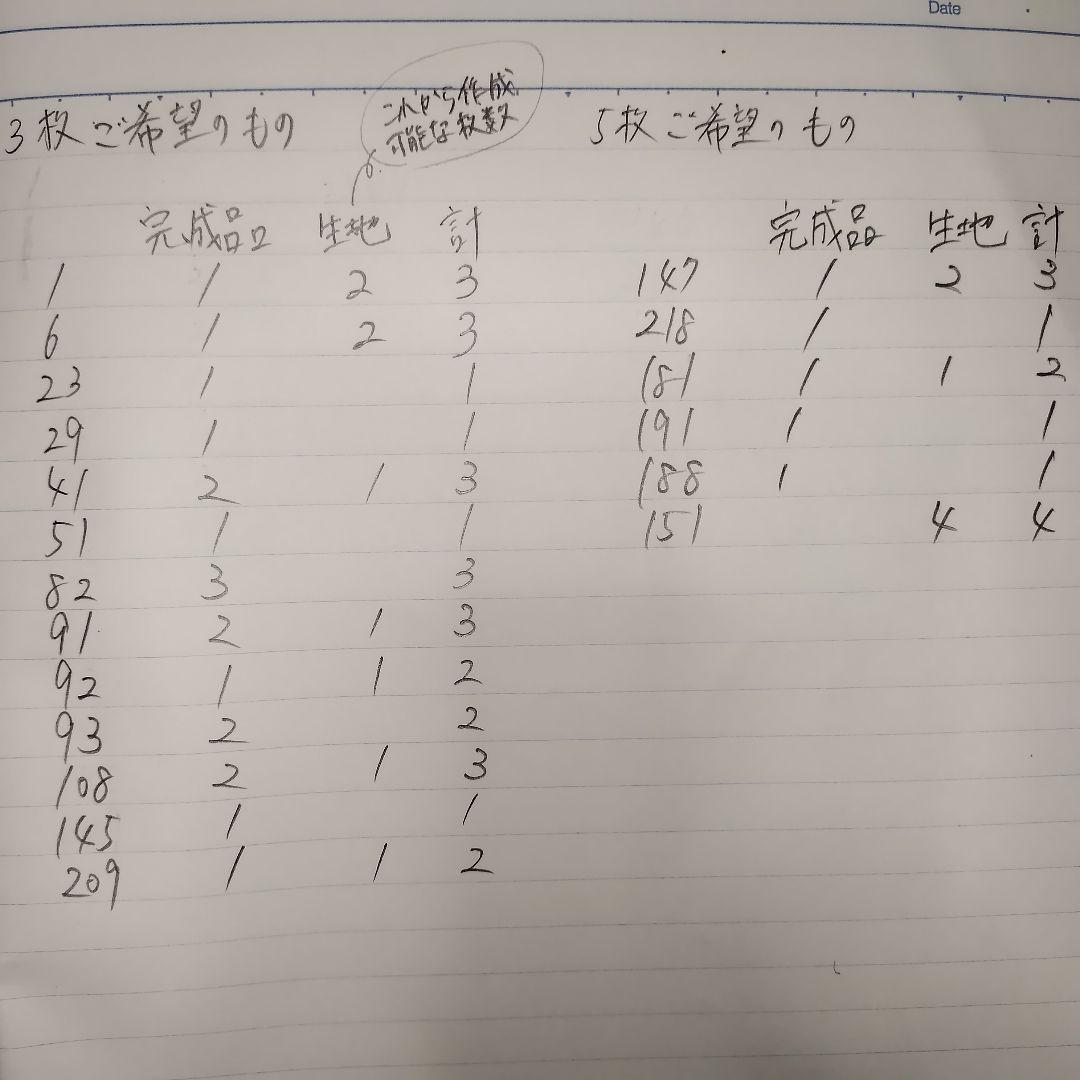 Date
3枚ご希望のもの
これから作成
可能な枚数
完成品 生地 計
1 1 2 3
6 1 2 3
23 1 1
29 1 1
41 2 1 3
51 1 1
82 3 3
91 2 1 3
92 1 1 2
93 2 2
108 2 1 3
145 1 1
209 1 1 2
5枚ご希望のもの
完成品 生地 計
147 1 2 3
218 1 1
181 1 1 2
191 1 1
188 1 1
151 4 4